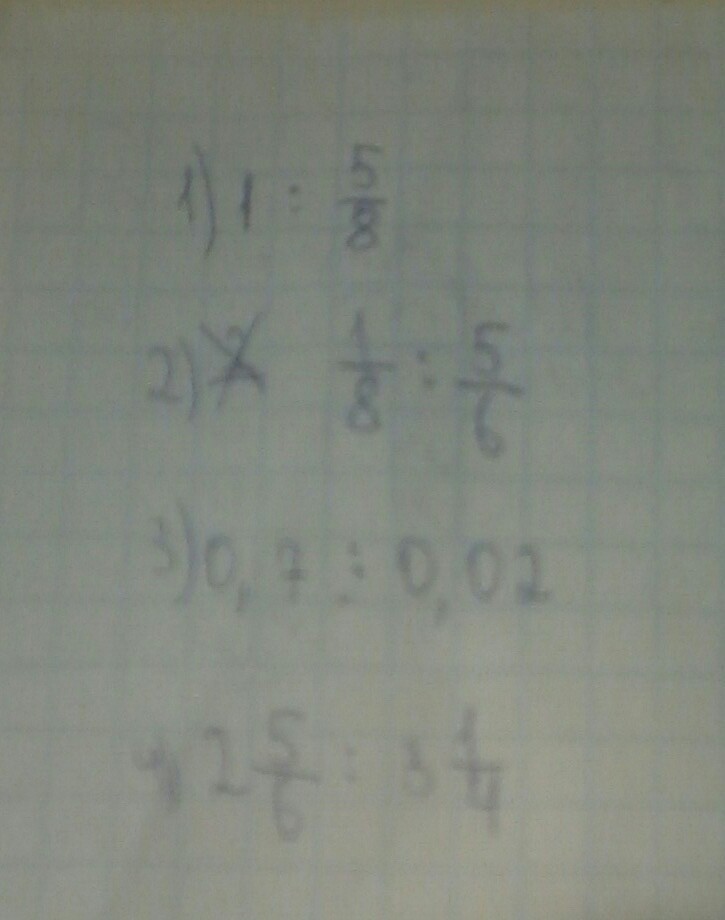 1) 1 : 5/8
2) 1/8 : 5/6
3) 0,7 : 0,02
4) 2 5/6 : 3 1/4